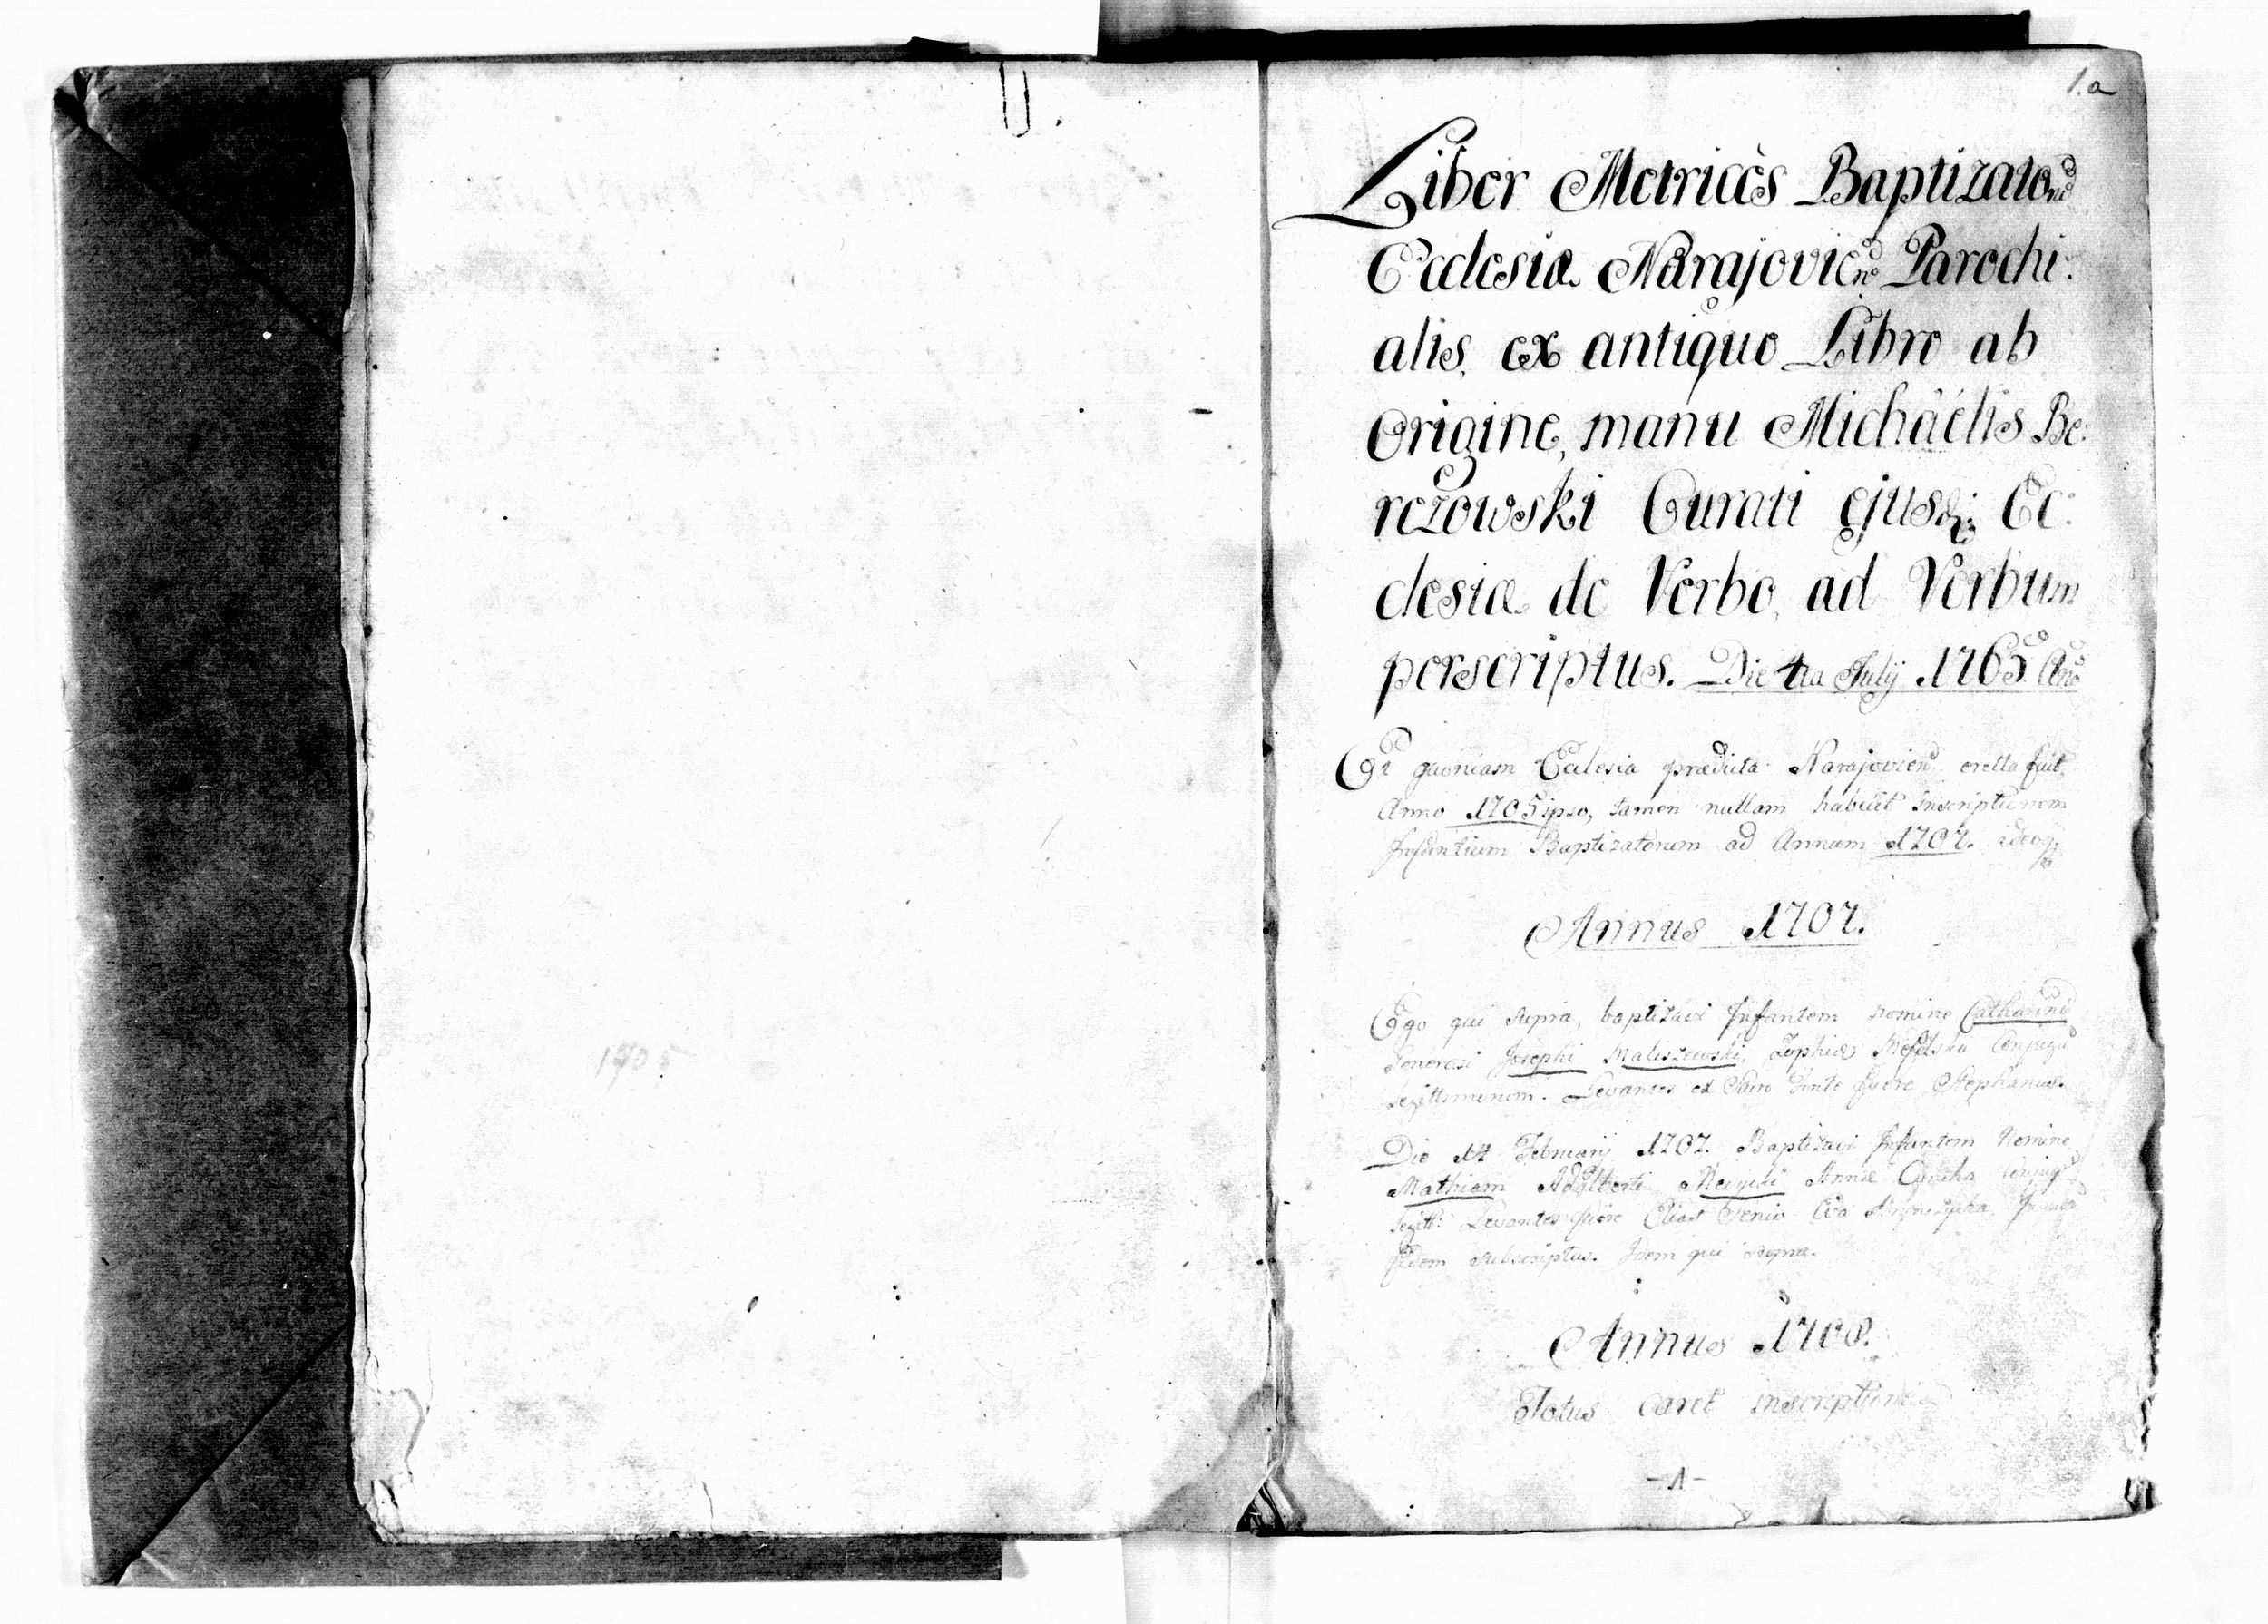 1905
1.a
Liber Metricės Baptizatorū
Ecclesiæ Narajovien̄ Parochi:
alis, ex antiquo Libro ab
Origine, manu Michäelis Be:
rezowski Curati ejusd: Ec:
clesiæ de Verbo, ad Verbum
perscriptus. Die 4ta Julÿ 1765. Añō
Et quoniam Ecclesia prædicta Narajovien̄ erecta fuit
Anno 1705 ipso, tamen nullam habuit inscriptionem
Infantium Baptizatorum ad Annum 1707. ideoq;
Annus 1707.
Ego qui supra, baptizavi Infantem nomine Catharinā
Generosi Josephi Maliszewski, Zophiæ Conjugū
legittimorum. Levantes ex Sacro Fonte fuere Stephanus.
Die 14 Februarÿ 1707. Baptizavi Infantem Nomine
Mathiam Adalberti Annæ Conjug
legitt: Levantes fuere Elias Eva
fidem subscriptus. Idem qui supra.
Annus 1708.
Totus caret inscriptione
-1-